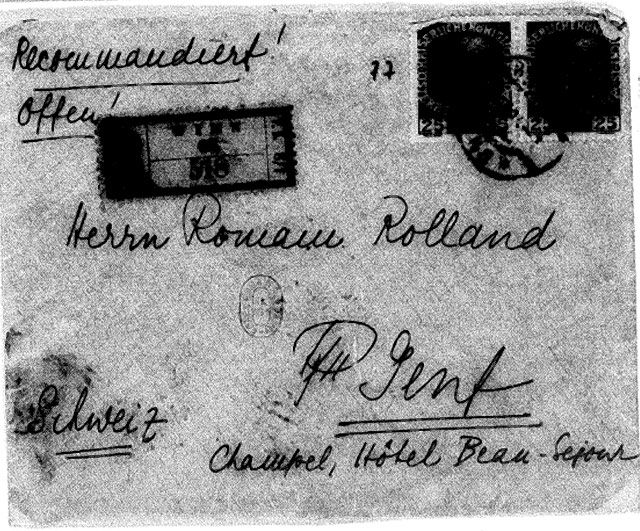 Recommandiert!
Offen!
77
25 25
WIEN
66
918
Herrn Romain Rolland
Genf
Schweiz
Champel, Hôtel Beau-Sejour